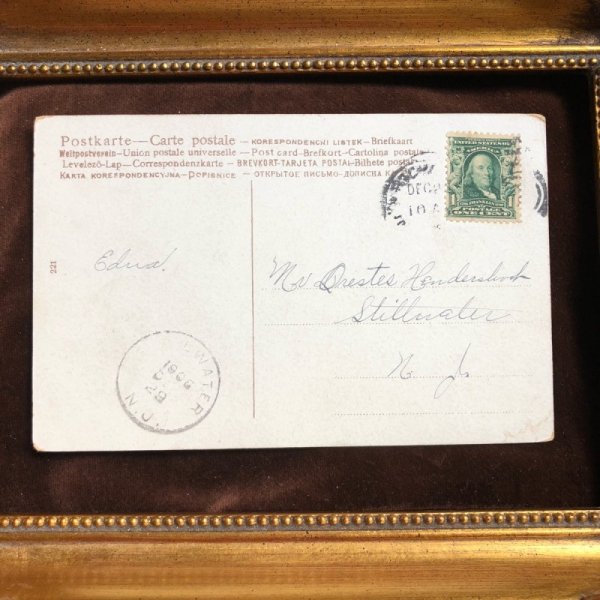 Postkarte—Carte postale – KORESPONDENCNI LISTEK – Briefkaart
Weltpostverein – Union postale universelle – Post card – Brefkort – Cartolina postale
Levelező-Lap – Correspondenzkarte – BREVKORT – TARJETA POSTAL – Bilhete postal
KARTA KORESPONDENCYJNA – DOPISNICE – ОТКРЫТОЕ ПИСЬМО – ДОПИСНА
UNITED STATES
1 FRANKLIN 1
POSTAGE
ONE CENT
DEC 2
10 A
Edna.
221
Mr Orestes Hendershock
Stillwater
N. J.
WATER
DEC
29
N.J.